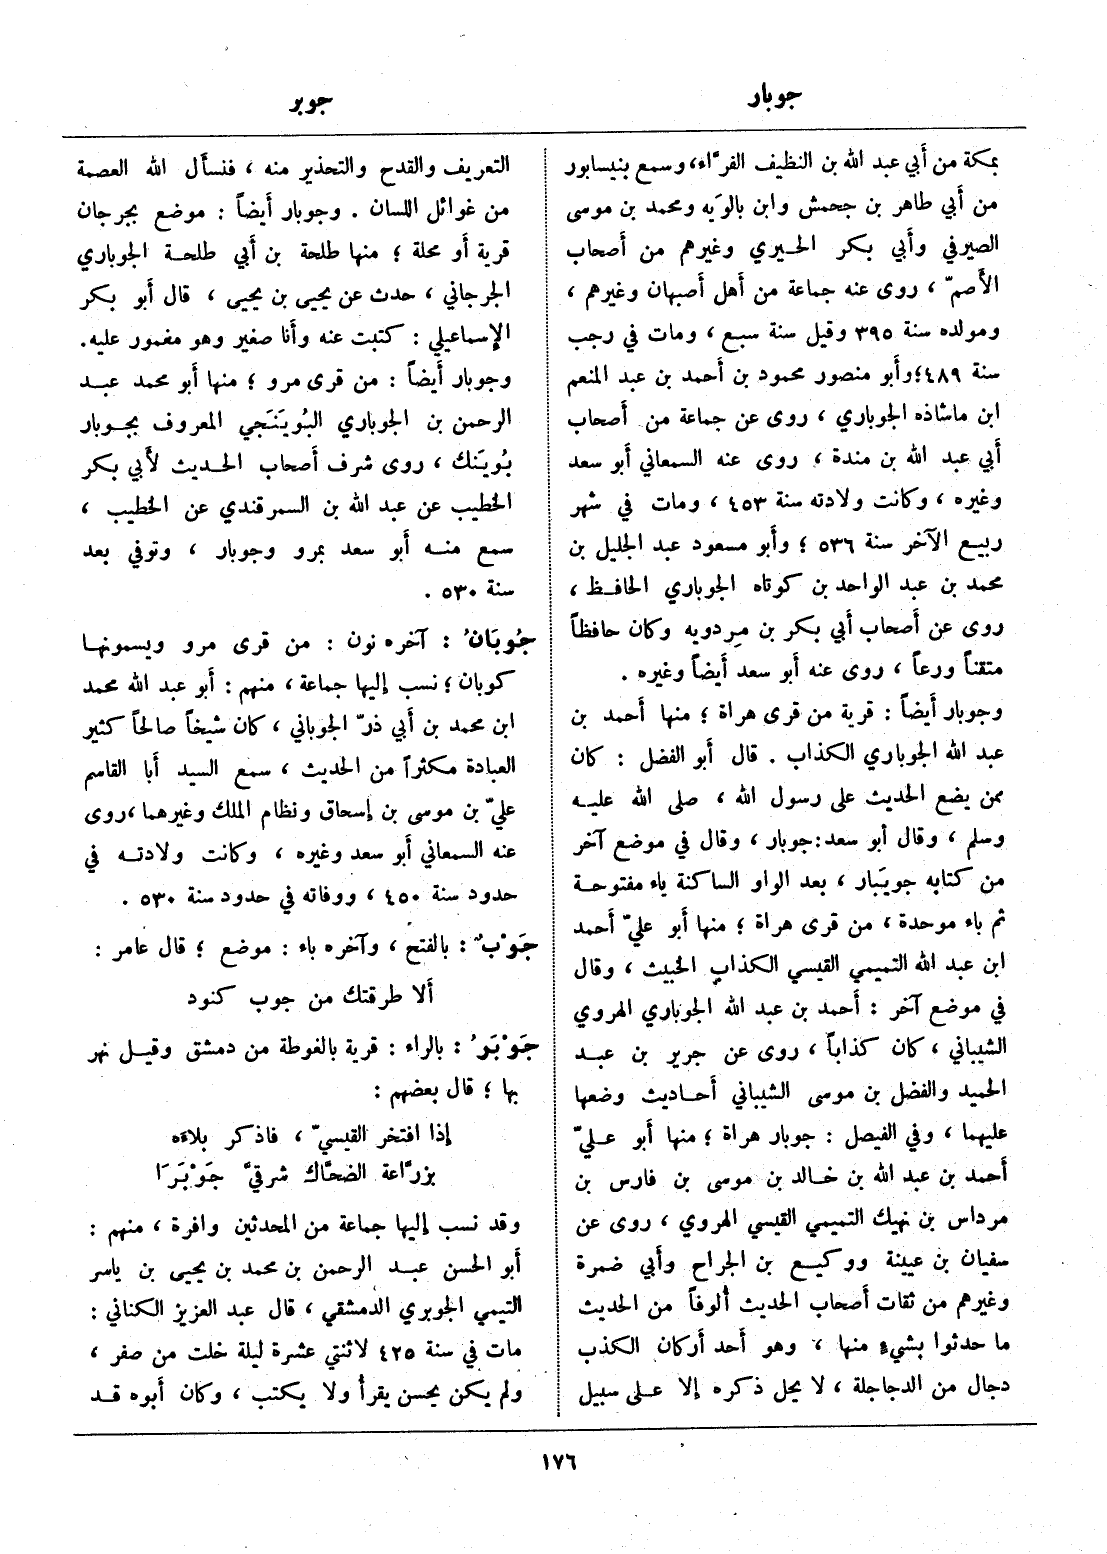 جوبار
جوبر
بمكة من أبي عبد الله بن النظيف الفرّاء، وسمع بنيسابور
من أبي طاهر بن جحمش وابن بالويه ومحمد بن موسى
الصيرفي وأبي بكر الحيري وغيرهم من أصحاب
الأصمّ، روى عنه جماعة من أهل أصبهان وغيرهم،
ومولده سنة ٣٩٥ وقيل سنة سبع، ومات في رجب
سنة ٤٨٩؛ وأبو منصور محمود بن أحمد بن عبد المنعم
ابن ماشاذه الجوباري، روى عن جماعة من أصحاب
أبي عبد الله بن مندة، روى عنه السمعاني أبو سعد
وغيره، وكانت ولادته سنة ٤٥٣، ومات في شهر
ربيع الآخر سنة ٥٣٦؛ وأبو مسعود عبد الجليل بن
محمد بن عبد الواحد بن كوتاه الجوباري الحافظ،
روى عن أصحاب أبي بكر بن مردويه وكان حافظاً
متقناً ورعاً، روى عنه أبو سعد أيضاً وغيره.
وجوبار أيضاً: قرية من قرى هراة؛ منها أحمد بن
عبد الله الجوباري الكذاب. قال أبو الفضل: كان
ممن يضع الحديث على رسول الله، صلى الله عليه
وسلم، وقال أبو سعد: جوبار، وقال في موضع آخر
من كتابه جويبار، بعد الواو الساكنة ياء مفتوحة
ثم باء موحدة، من قرى هراة؛ منها أبو عليّ أحمد
ابن عبد الله التميمي القيسي الكذاب الخبيث، وقال
في موضع آخر: أحمد بن عبد الله الجوباري الهروي
الشيباني، كان كذاباً، روى عن جرير بن عبد
الحميد والفضل بن موسى الشيباني أحاديث وضعها
عليهما، وفي الفيصل: جوبار هراة؛ منها أبو عليّ
أحمد بن عبد الله بن خالد بن موسى بن فارس بن
مرداس بن نهيك التميمي القيسي الهروي، روى عن
سفيان بن عيينة ووكيع بن الجراح وأبي ضمرة
وغيرهم من ثقات أصحاب الحديث ألوفاً من الحديث
ما حدثوا بشيء منها، وهو أحد أركان الكذب
دجال من الدجاجلة، لا يحل ذكره إلا على سبيل
التعريف والقدح والتحذير منه، فنسأل الله العصمة
من غوائل اللسان. وجوبار أيضاً: موضع بجرجان
قرية أو محلة؛ منها طلحة بن أبي طلحة الجوباري
الجرجاني، حدث عن يحيى بن يحيى، قال أبو بكر
الإسماعيلي: كتبت عنه وأنا صغير وهو مغمور عليه.
وجوبار أيضاً: من قرى مرو؛ منها أبو محمد عبد
الرحمن بن الجوباري البُوينَجي المعروف بجوبار
بُوينَك، روى شرف أصحاب الحديث لأبي بكر
الخطيب عن عبد الله بن السمرقندي عن الخطيب،
سمع منه أبو سعد بمرو وجوبار، وتوفي بعد
سنة ٥٣٠.
جُوبَانُ: آخره نون: من قرى مرو ويسمونها
كوبان؛ نسب إليها جماعة، منهم: أبو عبد الله محمد
ابن محمد بن أبي ذرّ الجوباني، كان شيخاً صالحاً كثير
العبادة مكثراً من الحديث، سمع السيد أبا القاسم
عليّ بن موسى بن إسحاق ونظام الملك وغيرهما، روى
عنه السمعاني أبو سعد وغيره، وكانت ولادته في
حدود سنة ٤٥٠، ووفاته في حدود سنة ٥٣٠.
جَوْبٌ: بالفتح، وآخره باء: موضع؛ قال عامر:
ألا طرقتك من جوب كنود
جَوْبَرُ: بالراء: قرية بالغوطة من دمشق وقيل نهر
بها؛ قال بعضهم:
إذا افتخر القيسيّ، فاذكر بلاءه
بزرّاعة الضحّاك شرقيَّ جَوْبَرَا
وقد نسب إليها جماعة من المحدثين وافرة، منهم:
أبو الحسن عبد الرحمن بن محمد بن يحيى بن ياسر
التيمي الجوبري الدمشقي، قال عبد العزيز الكناني:
مات في سنة ٤٢٥ لاثنتي عشرة ليلة خلت من صفر،
ولم يكن يحسن يقرأ ولا يكتب، وكان أبوه قد
١٧٦